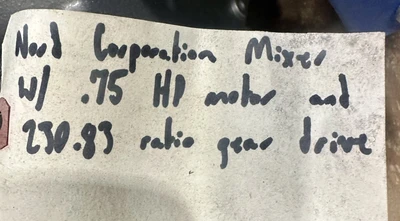 Nord Corporation Mixer
W/ .75 HP motor and
230.83 ratio gear drive